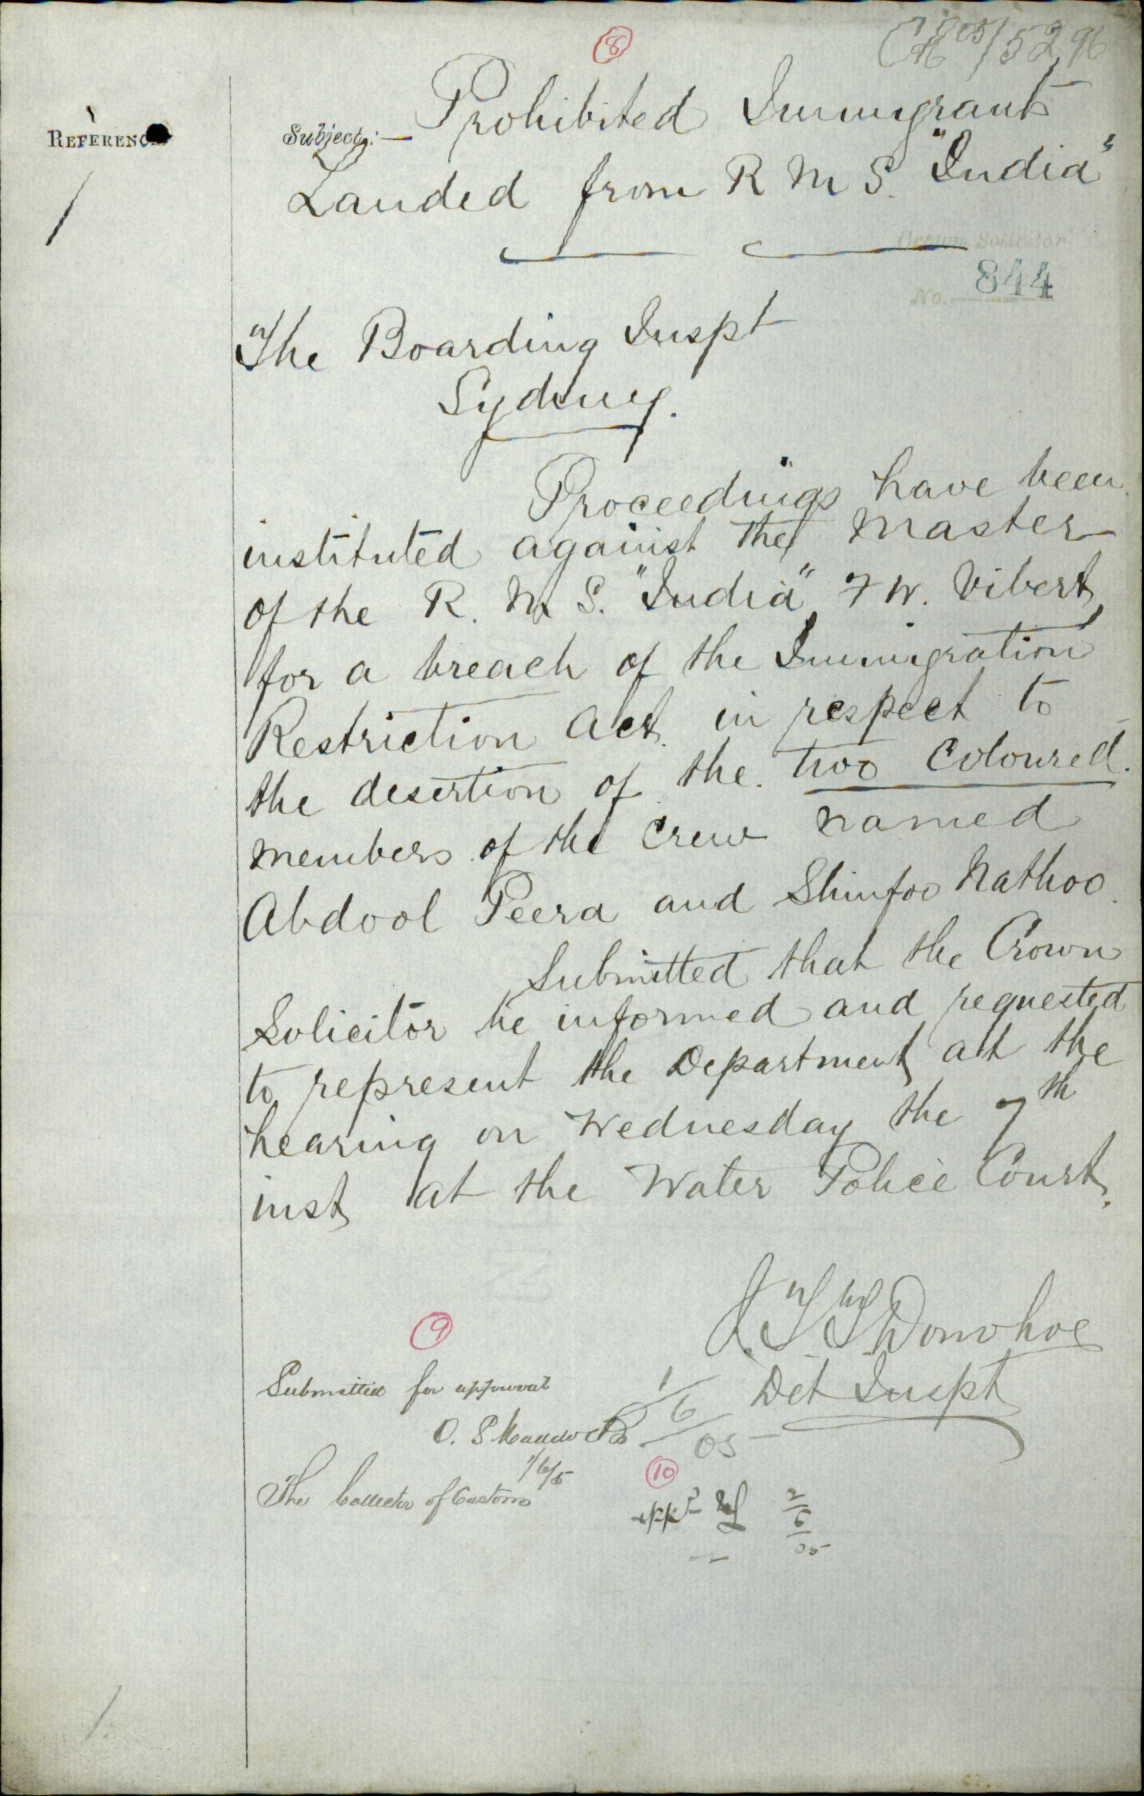 8
05/5296
REFERENCE
Subject:— Prohibited Immigrant
Landed from R M S. "India"
Crown Solicitor
No. 844
The Boarding Inspt
Sydney.
Proceedings have been
instituted against the Master
of the R. M S. "India" F W. Vibert
for a breach of the Immigration
Restriction Act. in respect to
the desertion of the two Coloured
members of the Crew named
Abdool Peera and Shinfoo Nathoo.
Submitted that the Crown
Solicitor be informed and requested
to represent the Department at the
hearing on Wednesday the 7th
inst at the Water Police Court.
J. T. T. Donohoe
Det Inspt
1/6/05
9
Submitted for approval
O. S. Maddocks
1/6/5
The Collector of Customs
10
appd
2/6/05